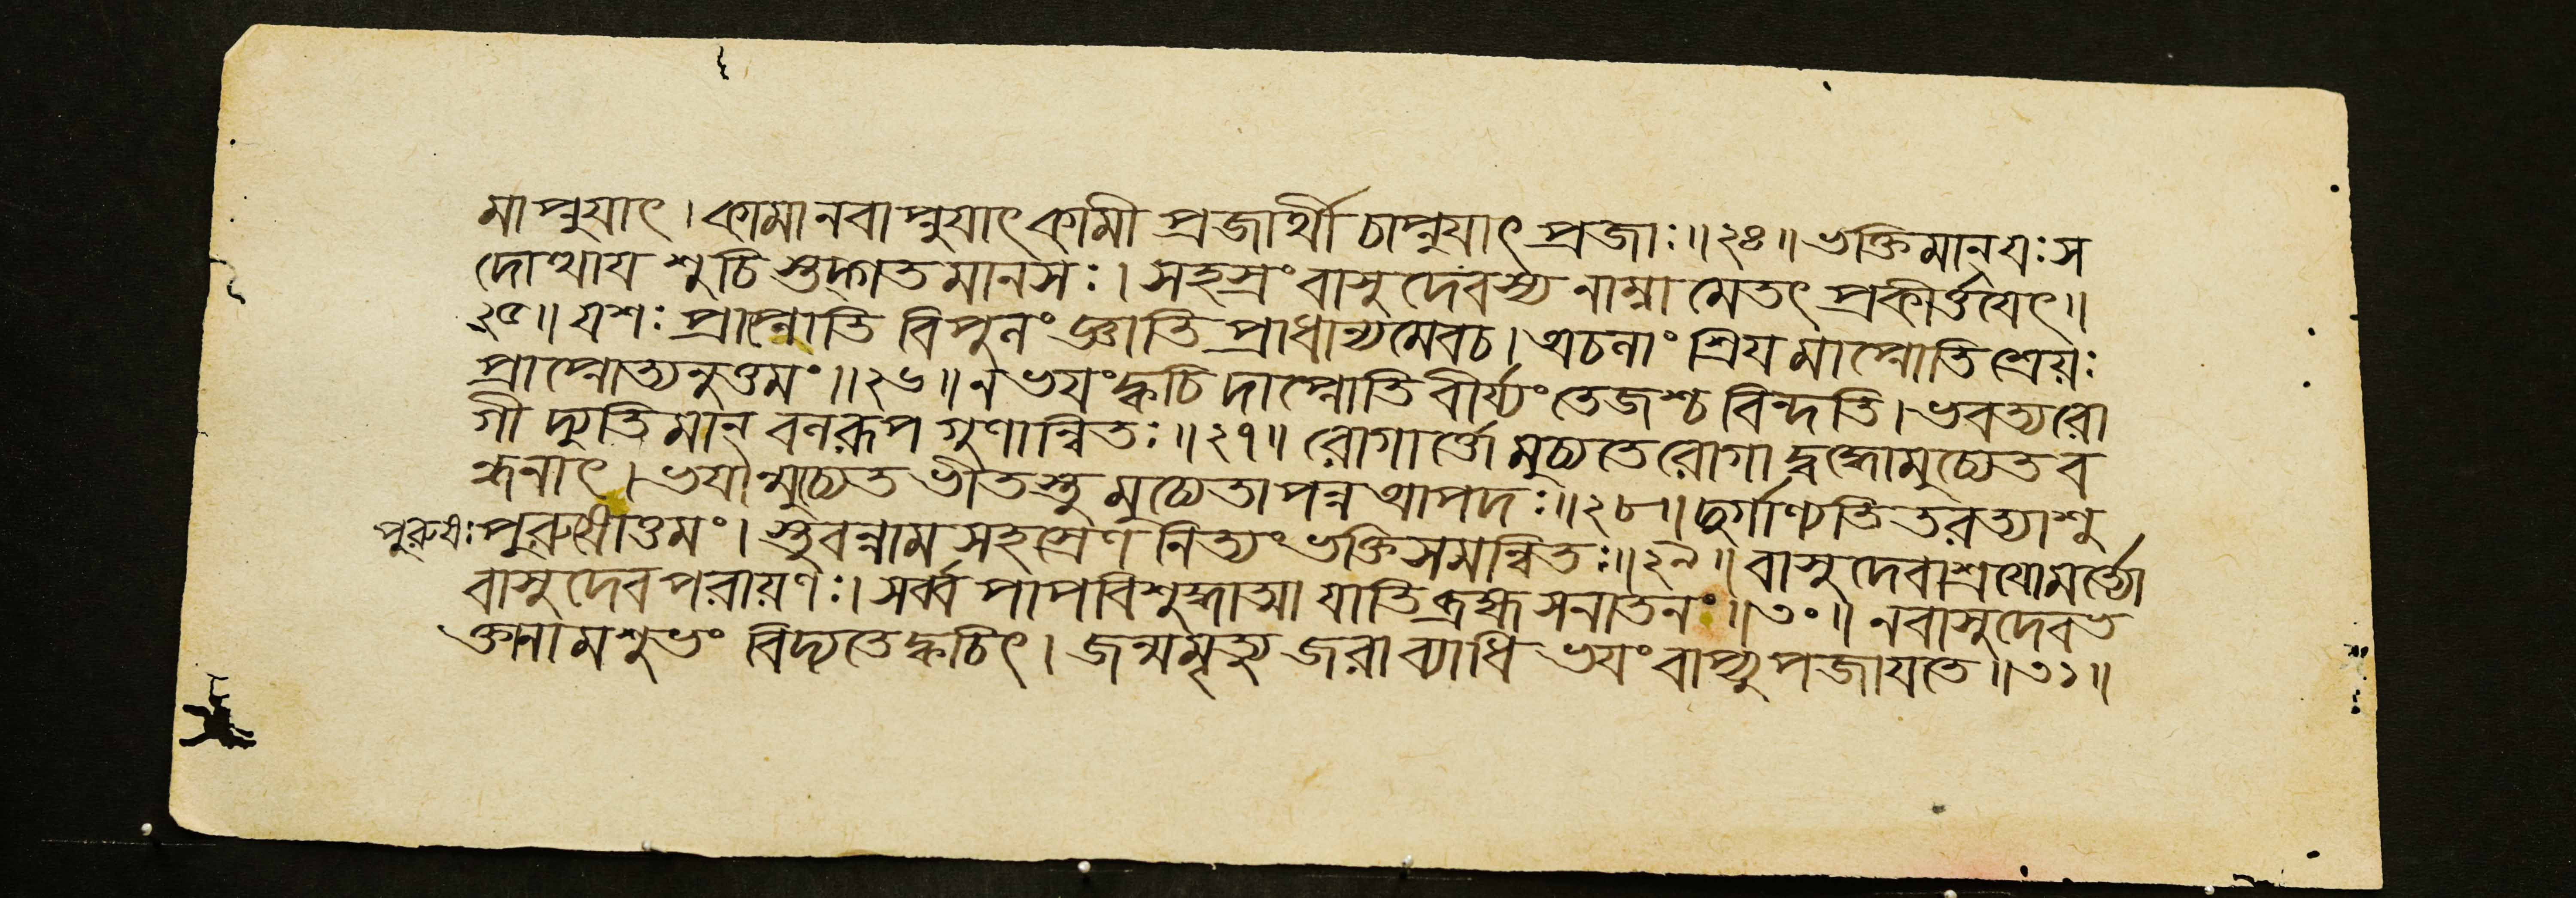 মাপ্নুযাৎ। কামানবাপ্নুযাৎ কামী প্রজার্থী চাপ্নুযাৎ প্রজাঃ॥২৪॥ ভক্তিমান্ যঃ স
দোত্থায শুচি স্তদ্গত মানসঃ। সহস্রং বাসুদেবস্য নাম্না মেতৎ প্রকীর্ত্তযেৎ॥
২৫॥ যশঃ প্রাপ্নোতি বিপুলং জ্ঞাতি প্রাধান্যমেবচ। অচলাং শ্রিয মাপ্নোতি শ্রেয়ঃ
প্রাপ্নোত্যনুত্তমং॥২৬॥ ন ভযং ক্বচি দাপ্নোতি বীর্য্যং তেজশ্চ বিন্দতি। ভবত্যরো
গী দ্যুতিমান্ বলরূপ গুণান্বিতঃ॥২৭॥ রোগার্ত্তো মুচ্যতে রোগা দ্বদ্ধোমুচ্যেত ব
ন্ধনাৎ। ভযান্মুচ্যেত ভীতস্তু মুচ্যেতাপন্ন আপদঃ॥২৮॥ দুর্গাণ্যতিতরত্যাশু
পুরুষঃ পুরুষোত্তমং। স্তুবন্নাম সহস্রেণ নিত্যং ভক্তিসমন্বিতঃ॥২৯॥ বাসুদেবাশ্রযোমর্ত্ত্যো
বাসুদেবপরায়ণঃ। সর্ব্ব পাপবিশুদ্ধাত্মা যাতি ব্রহ্ম সনাতনং॥৩০॥ ন বাসুদেবভ
ক্তানামশুভং বিদ্যতে ক্বচিৎ। জন্মমৃত্যু জরা ব্যাধি ভযং বাপ্যুপজাযতে॥৩১॥